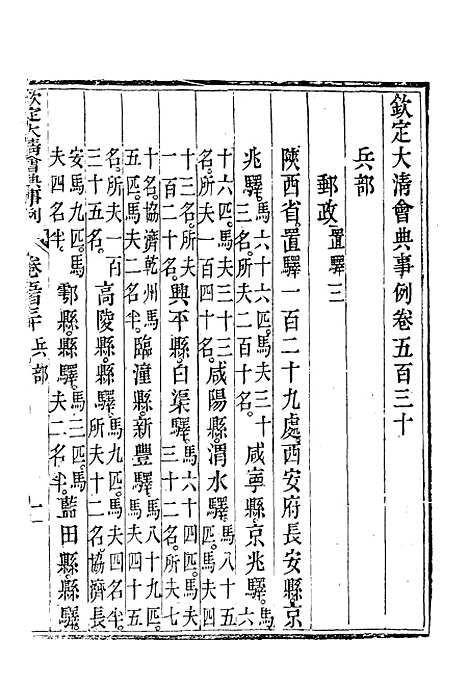 欽定大清會典事例卷五百三十
兵部
郵政 置驛三
陝西省。置驛一百二十九處。西安府長安縣京
兆驛。馬六十六匹。馬夫三十三名。所夫二百十名。咸寧縣京兆驛。馬六
十六匹。馬夫三十三名。所夫一百四名。咸陽縣渭水驛。馬八十五匹。馬夫四
十三名。所夫一百二十名。興平縣白渠驛。馬六十四匹。馬夫三十二名。所夫七
十名。協濟乾州馬五匹。馬夫二名半。臨潼縣新豐驛。馬八十九匹。馬夫四十五
名。所夫一百三十五名。高陵縣縣驛。馬九匹。馬夫四名半。所夫十二名。協濟長
安馬九匹。馬夫四名半。鄠縣縣驛。馬三匹。馬夫二名半。藍田縣縣驛。
欽定大清會典事例 卷五百三十 兵部 一